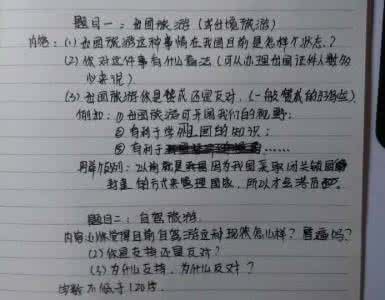 题目一：出国旅游（或出境旅游）
内容：(1) 出国旅游这种事情在我国目前是怎样个状态？
(2) 你对这件事有什么看法（可以办理出国证件人数的多少来说）
(3) 出国旅游你是赞成还是反对，(一般赞成的好些)
例如：① 出国旅游可开阔我们的视野；
② 有利于学习外国的知识；
③ 有利于……
用举例：以前就是因为我国采取闭关锁国
封建 方式来管理国家，所以才会落后
题目二：自驾旅游
内容：(1) 你觉得目前自驾游这种现状怎么样？普遍吗？
(2) 你是支持还是反对？
(3) 为什么支持，为什么反对？
字数不低于120字。